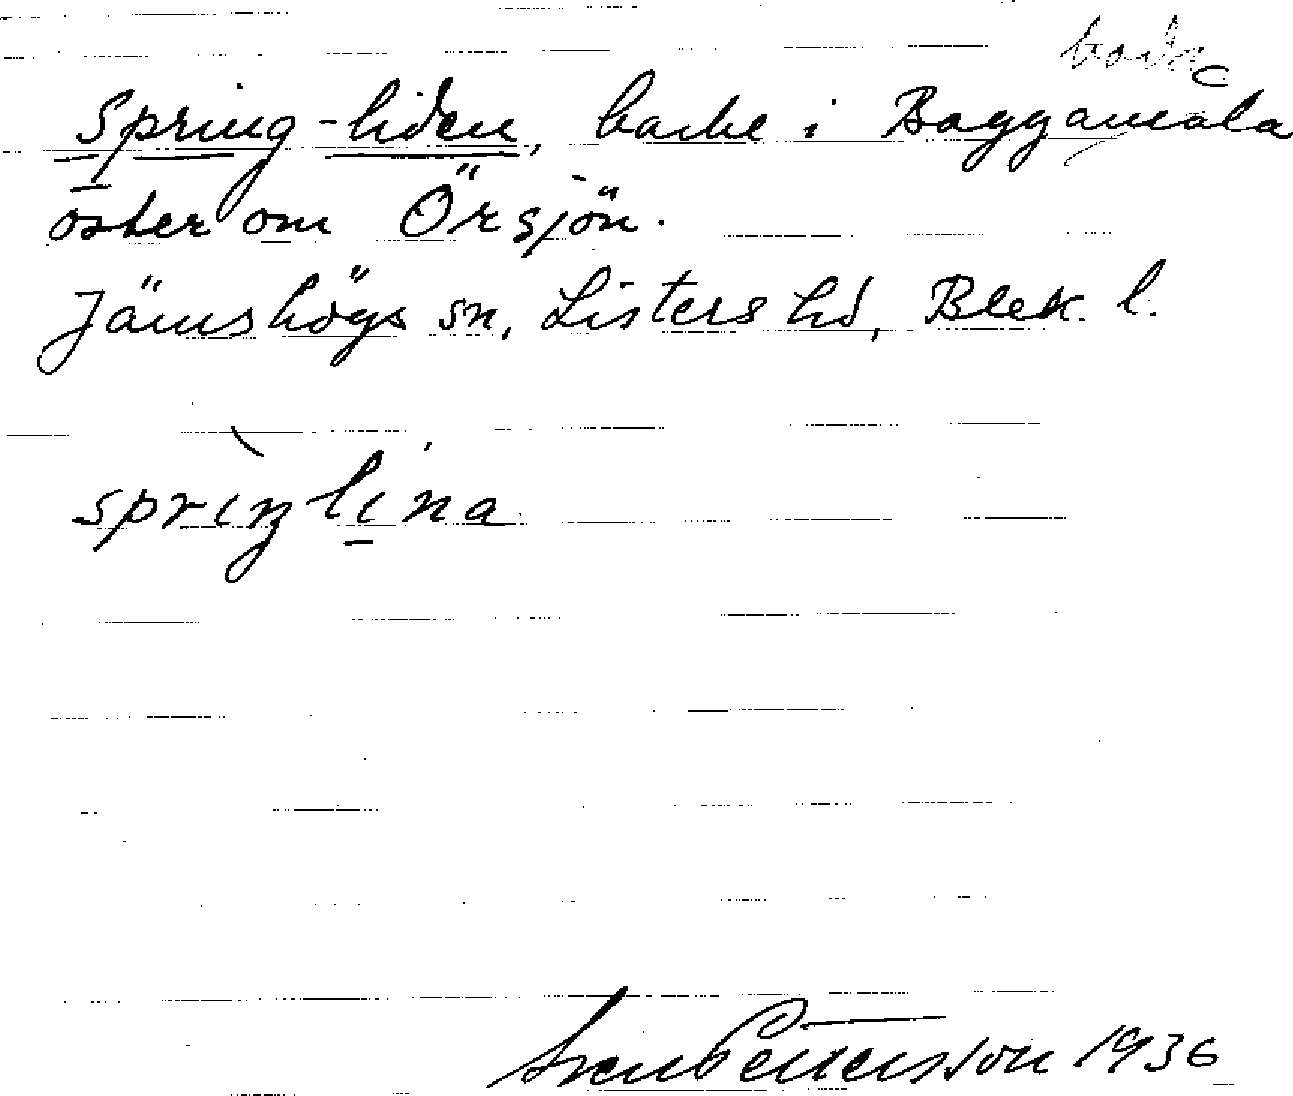 Spring-liden, backe i Baggamåla
öster om Örsjön.
Jämshögs sn, Listers hd, Blek. l.
sprìŋlína
Sven Pettersson 1936